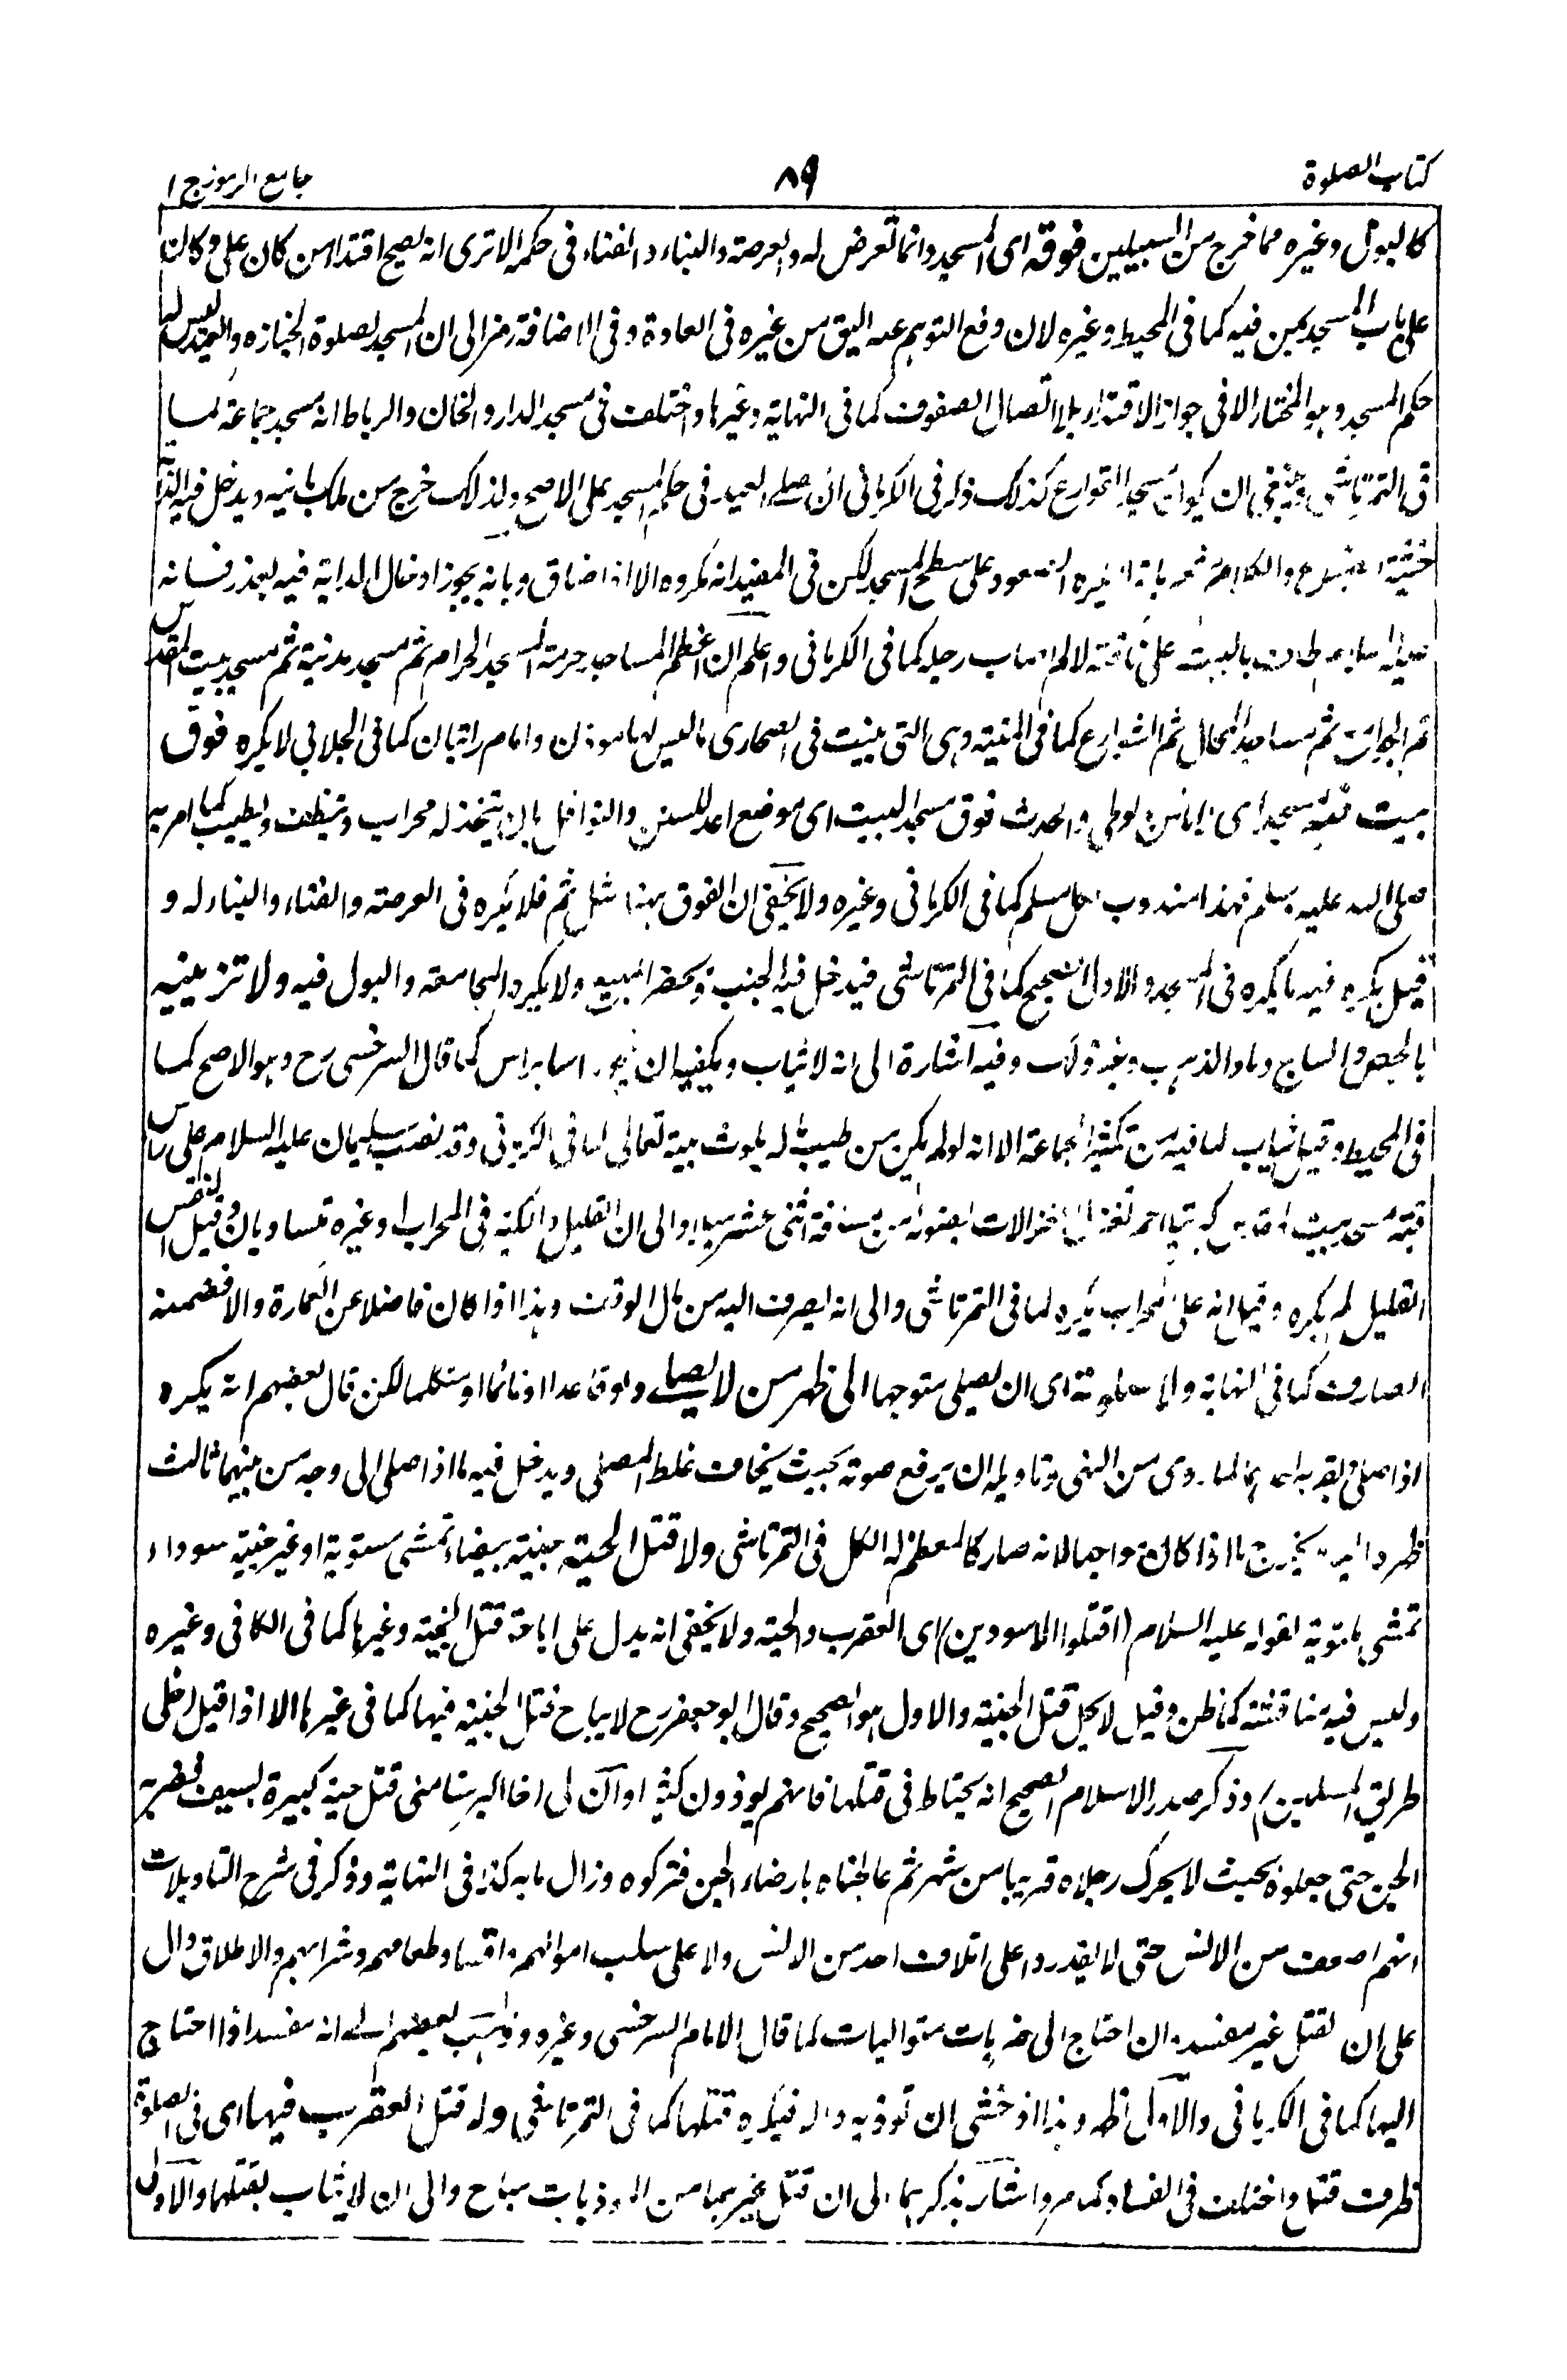 كتاب الصلوة
٨٩
جامع الرموز ج ١
كالبول وغيره مما خرج من السبيلين فوقه اى المسجد وانما تعرض له والعرصة والبناء والفناء فى حكمه الا ترى انه يصح اقتداء من كان على دكان
على باب المسجد بمن فيه كما فى المحيط وغيره لان دفع التوهم عنه اليق من غيره فى العادة وفى الاضافة رمز الى ان المسجد لصلوة الجنازه والعيد ليس له
حكم المسجد وهو المختار الا فى جواز الاقتداء بلا اتصال الصفوف كما فى النهاية وغيرها واختلف فى مسجد الدار والخان والرباط انه مسجد جماعة كما
فى التمرتاشى وينبغى ان يكون مسجد الشوارع كذلك وذكر فى الكرمانى ان مصلى العيد فى حكم المسجد على الاصح ولذلك خرج من ملك بانيه ويدخل فيه
خشية والكلام على سطح المسجد لكن فى المفيد انه مكروه الا اذا ضاق وبانه يجوز ادخال الدابة فيه بعذر فانه
طاف بالبيت على ناقته لالم اصاب رجله كما فى الكرمانى واعلم ان اعظم المساجد حرمة المسجد الحرام ثم مسجد مدنية ثم مسجد بيت المقدس
ثم الجوامع ثم مساجد المحال ثم الشوارع كما فى المنية وهى التى بنيت فى الصحارى مما ليس لها موذن وامام راتبان كما فى الجلابى لا يكره فوق
بيت فيه مسجد اى لا باس بالوطى والحدث فوق مسجد البيت اى موضع اعد للسنن والنوافل بان يتخذ له محراب وينظف ويطيب كما امر به
صلى الله عليه وسلم فهذا مندوب لكل مسلم كما فى الكرمانى وغيره ولا يخفى ان الفوق بهنا مثل ثم فلا يكره فى العرصة والفناء والبناء له و
قيل يكره فيه ما يكره فى المسجد والاول الصحيح كما فى التمرتاشى فيدخل فيه الجنب ويحضر المبيع ولا يكره المجامعة والبول فيه ولا تزيينه
بالجص والساج وماء الذهب وغير ذلك وفيه اشارة الى انه لا يثاب ويكفيه ان ينجو راسا براس كما قال السرخسى رح وهو الاصح كما
فى المحيط وقيل يثاب لما فيه من تكثير الجماعة الا انه لو لم يكن من طيب ماله يلوث بيته تعالى كما فى الكرمانى وقد نصب سليمان عليه السلام على راس
قبة مسجد بيت المقدس كبريتا احمر تغزل الغزالات بضوئه من مسافة اثنى عشر ميلا والى ان القليل والكثير فى المحراب وغيره متساويان وقيل النقش
القليل لم يكره وقيل انه على المحراب يكره كما فى التمرتاشى والى انه يصرف اليه من مال الوقف وهذا اذا كان فاضلا عن العمارة والا فضمنه
الصارف كما فى النهاية ولا صلوته اى ان يصلى متوجها الى ظهر من لا يصلى ولو قاعدا او نائما او متكلما لكن قال بعضهم انه يكره
اذا صلى وبقربه لما روى من النهى وتاويله ان يرفع صوته بحيث يخاف غلط المصلى ويدخل فيه ما اذا صلى الى وجه من بينهما ثالث
ظهره اليه يخرج ما اذا كان مواجها لانه صار كالمعظم له الكل فى التمرتاشى ولا قتل الحية جنية بيضاء تمشى مستوية او غير جنية سوداء
تمشى ملتوية لقوله عليه السلام (اقتلوا الاسودين) اى العقرب والحية ولا يخفى انه يدل على اباحة قتل الجنية وغيرها كما فى الكافى وغيره
وليس فيه مناقشة كما ظن وقيل لا يحل قتل الجنية والاول هو الصحيح وقال ابو جعفر رح لا يباح قتل الجنية فيها كما فى غيرها الا اذا قيل (خلى
طريق المسلمين) وذكر صدر الاسلام الصحيح انه يحتاط فى قتلها فانهم يوذون كثيرا وان لى اخا اكبر سنا منى قتل حية كبيرة بسيف فضربه
الجن حتى جعلوه بحيث لا يحرك رجلاه قريبا من شهر ثم عالجناه بارضاء الجن فتركوه وزال ما به كذا فى النهاية وذكر فى شرح التاويلات
انهم اضعف من الانس حتى لا يقدروا على اتلاف احد من الانس ولا على سلب اموالهم وافساد طعامهم وشرابهم والاطلاق دال
على ان القتل غير مفسد وان احتاج الى ضربات متواليات كما قال الامام السرخسى وغيره وذهب بعضهم الى انه مفسد اذا احتاج
اليها كما فى الكرمانى والاول اظهر وهذا اذا خشى ان توذيه والا فيكره قتلها كما فى التمرتاشى ولا قتل العقرب فيها اى فى الصلوة
ظرف قتل واختلف فى الفساد كما مر واشار بذكرهما الى ان قتل غيرهما من الموذيات مباح والى ان لا يثاب بقتلها والاولى